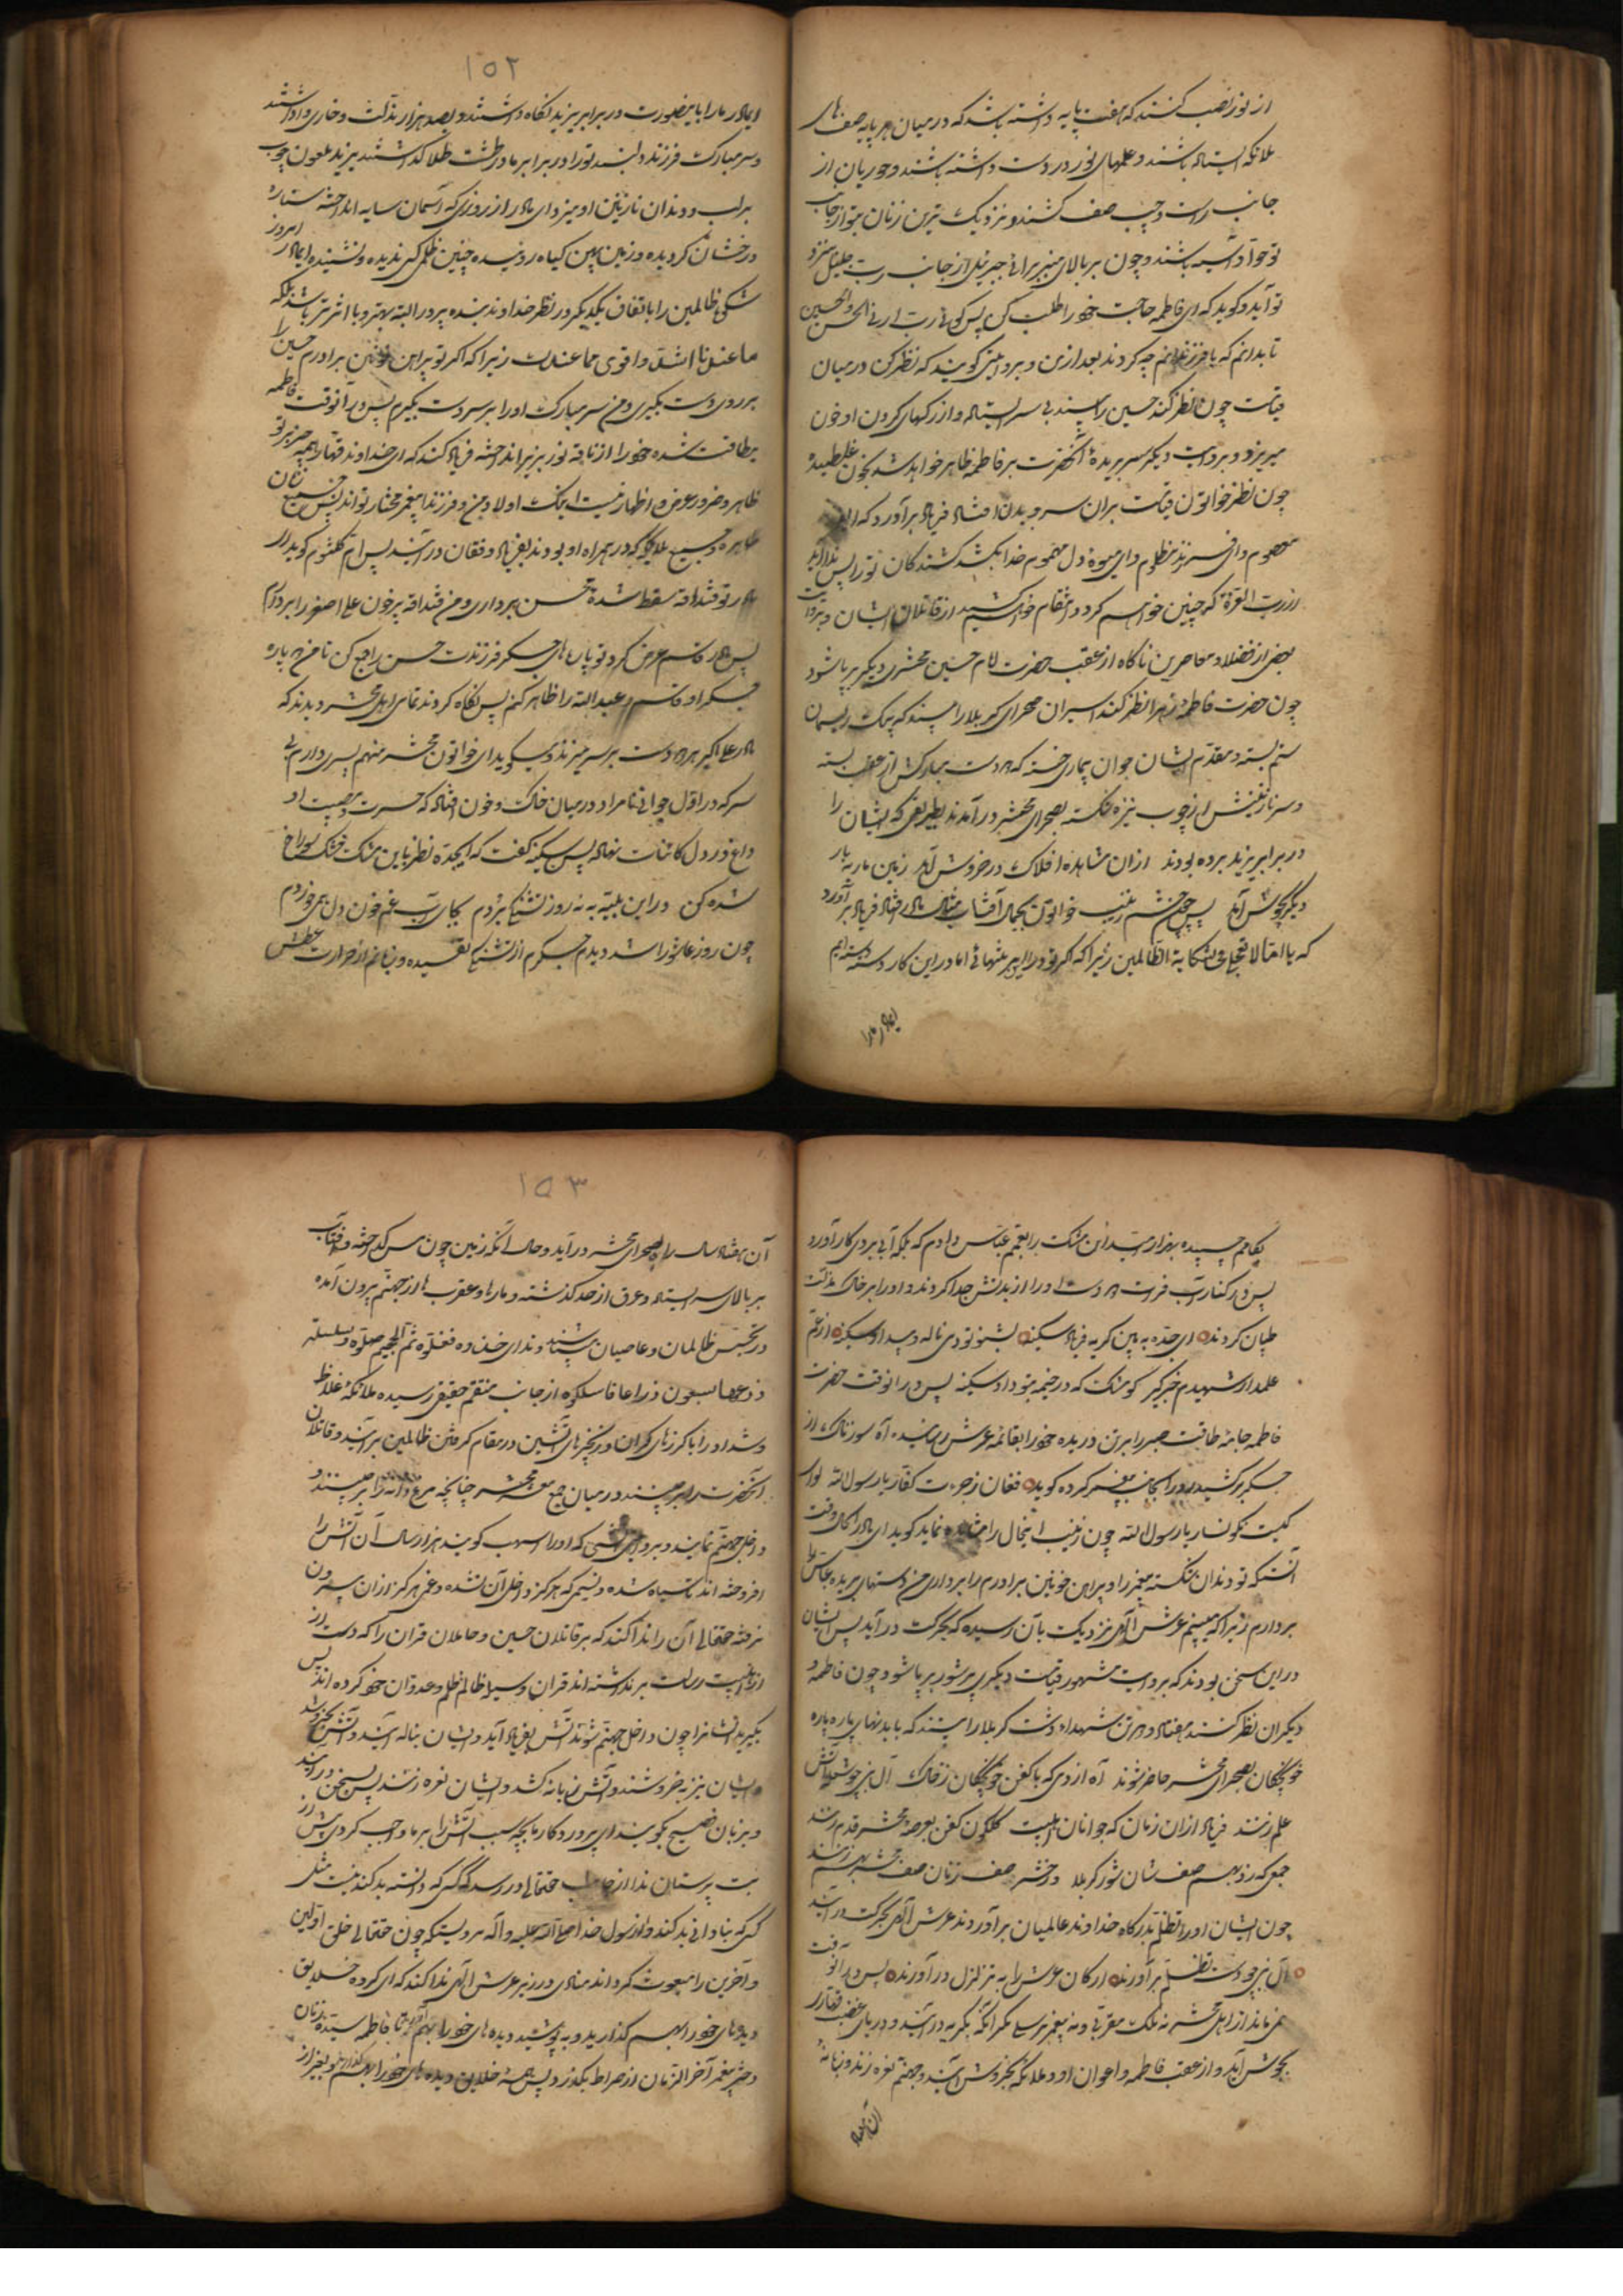 از نور نصب کنند که هفت پایه داشته باشد که در میان هر پایه صفهای
ملائکه ایستاده باشند و علمهای نور در دست داشته باشند و حوریان از
جانب راست و چپ صف کشند و نزدیک ترین زنان بتو از جانب
تو حوا و آسیه باشند و چون بر بالای منبر برائی جبرئیل از جانب رب جلیل بنزد
تو آید و گوید که ای فاطمه حاجت خود را طلب کن پس گوئی رب ارنی الحسن و الحسین
تا بدانم که با فرزندانم چه کردند بعد ازین و بروایتی گویند که نظر کن در میان
قیامت چون نظر کند حسین را بیند بی سر ایستاده و از رگهای گردن او خون
میریزد و بروایت دیگر سر بریدهٔ آنحضرت بر فاطمه ظاهر خواهد شد بخون غلطیده
چون نظر خواتون قیامت بران سر و بدن افتد فریاد برآورد که ای
معصوم و ای فرزند مظلوم و ای میوهٔ دل مهموم خدا بکشد کشندگان تو را پس ندا آید
از رب العزة که چنین خواهم کرد و انتقام خواهم کشید از قاتلان ایشان و بروایت
بعضی از فضلاء معاصرین ناگاه از عقب حضرت امام حسین محشری دیگر برپا شود
چون حضرت فاطمه زهرا نظر کند اسیران صحرای کربلا را بیند که بیک ریسمان
ستم بسته و مقدم ایشان جوان بیماری خسته که هر دو دست مبارکش از عقب بسته
و سر نازنینش از چوب نیزه شکسته بصحرای محشر درآمدند بطریقی که ایشان را
در برابر یزید برده بودند ازان مشاهده افلاک در خروش آید زمین بار به بار
دیگر بجوش آید پس چون چشم زینب خواتون بجمال آفتاب مثال مادر افتد فریاد برآورد
که یا امتا لا تعجلی فی شکایة الظالمین زیرا که اگر تو در این پیر بتنهائی اما در این کار دسته دسته ایم
ایمادر ما را
۱۵۲
ایمادر ما را باینصورت در برابر یزید نگاه داشتند و بصد هزار مذلت و خاری واداشتند
و سر مبارک فرزند دلبند تو را در برابر ما در طشت طلا گذاشتند یزید ملعون چوب
بر لب و دندان نازنین او میزد ای مادر از روزی که آسمان سایه انداخته ستاره
درخشان گردیده و زمین پهن گیاه روئیده چنین ظلمی کس ندیده و نشنیده ایمادر امروز
شکوه ظالمین را باتفاق یکدیگر در نظر خداوند بنده پرور البته بهتر و با اثرتر باشد بلکه
ما عندنا اشد و اقوی مما عندک زیرا که اگر تو پیراهن خونین برادرم حسین را
بر روی دست بگیری من سر مبارک او را بر سر دست بگیرم پس در آنوقت فاطمه
بیطاقت شده خود را از ناقهٔ نور بزیر انداخته فریاد کند که ای خداوند قهار همه چیز بر تو
ظاهر و ضرور عرض و اظهار نیست اینک اولاد من و فرزند پیغمبر مختار تواند پس جمیع زنان
طاهره و جمیع ملائکه که در همراه او بودند بفریاد و فغان درآیند پس ام کلثوم گوید ای
مادر تو قنداقه سقط شده محسن برداری و من قنداقه پر خون علی اصغر را بردارم
پس مادر قاسم عرض کرد تو پارهای جگر فرزندت حسن را جمع کن تا من پاره پاره
جگر او قاسم و عبدالله را ظاهر کنم پس نگاه کردند تمامی اهل محشر دیدند که
مادر علی اکبر هر دو دست بر سر میزند و میگوید ای خواتون محشر منهم پسری دارم بی
سر که در اول جوانی نامراد در میان خاک و خون افتاد که حسرت مصیبت او
داغ در دل کائنات نهاده پس سکینه گفت که ایجده نظر باین مشک خشک سوراخ
شده کن در این بلیه به نه روز تشنگی بودم بجای آب غم خون دل همی خوردم
چون روز عاشورا شد دیدم جگرم از تشنگی تفسیده و زبانم از حرارت عطش
بکامم چسپیده بهزار امید این مشک را بعمم عباس دادم که بلکه آبی بروی کار آورد
پس در کنار آب فرات هر دو دست او را از بدنش جدا کردند و او را بر خاک مذلت
طپان کردند ای جده به بین گریه فریاد سکینه بشنو تو دمی ناله و بیداد سکینه از عم
علمدار شهیدم خبر گیر کو مشک که در خیمه بتو داد سکینه پس در آنوقت حضرت
فاطمه جامهٔ طاقت صبر را بر تن دریده خود را بقائمهٔ عرش رسانیده آه سوزناک از
جگر برکشید و رو را بجانب پیغمبر کرده گوید فغان ز جرءت کفار یا رسول الله لوای
کیت نگونسار یا رسول الله چون زینب اینحال را مشاهده نماید گوید ای مادر الحال وقت
آنست که تو دندان شکسته پیغمبر را و پیراهن خونین برادرم را برداری من دستهای بریده عباس را
بردارم زیرا که میبینم عرش الهی نزدیک بآن رسیده که بحرکت درآید پس ایشان
در این سخن بودند که بروایت مشهور قیامت دیگری پر شور برپا شود چون فاطمه و
دیگران نظر کنند هفتاد و دو تن شهداء دشت کربلا را بینند که با بدنهای پاره پاره
خونچکان بصحرای محشر حاضر شوند آه از دمی که با کفن خونچکان ز خاک آل نبی چو شعلهٔ آتش
علم زنند فریاد ازان زمان که جوانان اهلبیت گلگون کفن بعرصهٔ محشر قدم زنند
جمعی که زد بهم صف شان شور کربلا در حشر صف زنان صف محشر بهم زنند
چون ایشان او را تظلم بدرگاه خداوند عالمیان برآوردند عرش الهی بحرکت درآید
آل نبی چو دست تظلم برآورند ارکان عرش را به تزلزل درآورند پس در آنوقت
نمی ماند از اهل محشر نه ملک مقربی و نه پیغمبر مرسلی مگر آنکه بگریه درآیند و دریای غضب قهاری
بجوش آید و از عقب فاطمه و اعوان او و ملائکه بخروش آیند و جهنم نعره زند و زبانهٔ
آن هفتاد
۱۵۳
آن هفتاد ساله راه بصحرای محشر درآید و حال آنکه زمین چون مس گداخته و آفتاب
بر بالای سر ایستاده و عرق از حد گذشته و مارها و عقرب ها از جهنم بیرون آمده
در تجسس ظالمان و عاصیان بیستند و ندای خذوه فغلوه ثم الجحیم صلوه و بسلسلة
ذرعها سبعون ذراعا فاسلکوه از جانب منتقم حقیقی رسیده ملائکهٔ غلاظ
و شداد را با گرزهای گران و زنجیرهای آتشین در مقام گرفتن ظالمین برآیند و قاتلان
آنحضرت را برچینند در میان جمع محشر چنانچه مرغ دانه را برچیند و
داخل جهنم نمایند و بروایتی آتشی که او را سهب گویند هزار سال آن آتش را
افروخته اند تا سیاه شده و نسیمی که هرگز داخل آن نشده و غمی هرگز ازان بیرون
نرفته حقتعالی آن را ندا کند که بر قاتلان حسین و حاملان قران را که دست از
اذیت اهلبیت رسالت برنداشته اند قران وسیلهٔ ظالم ظلم و عدوان خود کرده اند پس
بگیر ایشانرا چون داخل جهنم شوند آتش بفریاد آید و ایشان بناله آیند و آتش بخروشد
و ایشان نیز به خروشند و آتش زبانه کشد و ایشان نعره زنند پس بسخن درآیند
و بزبان فصیح بگویند ای پروردگار ما بچه سبب آتش را بر ما واجب کردی پیش از
بت پرستان ندا از جانب حقتعالی در رسد که کسی که دانسته بد کند نیست مثل
کسی که بنادانی بد کند و از رسول خدا صلی الله علیه و آله مرویست که چون حقتعالی خلق اولین
و آخرین را مبعوث گرداند منادی در زیر عرش الهی ندا کند که ای گروه خلایق
دیدهای خود را بهم گذارید و بپوشید دیده های خود را تا فاطمه سیدهٔ زنان
دختر پیغمبر آخر الزمان از صراط بگذرد پس همهٔ خلایق دیده های خود را بهم گذارند بغیر از